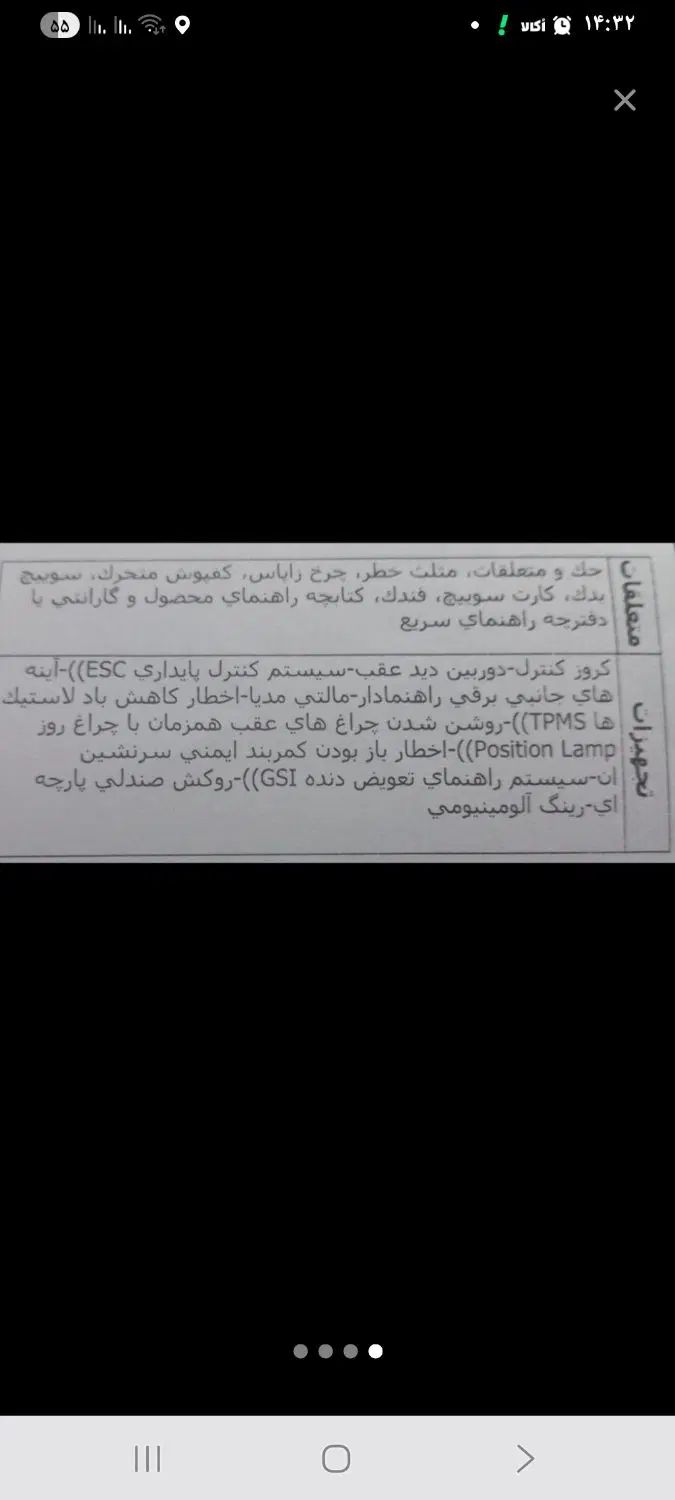 ۱۴:۳۲ آکالا
۵۵
متعلقات
جك و متعلقات، مثلث خطر، چرخ زاپاس، كفپوش متحرك، سوييچ
يدك، كارت سوييچ، فندك، كتابچه راهنماي محصول و گارانتي يا
دفترچه راهنماي سريع
تجهيزات
كروز كنترل-دوربين ديد عقب-سيستم كنترل پايداري ESC))-آينه
هاي جانبي برقي راهنمادار-مالتي مديا-اخطار كاهش باد لاستيك
ها TPMS))-روشن شدن چراغ هاي عقب همزمان با چراغ روز
Position Lamp))-اخطار باز بودن كمربند ايمني سرنشين
ان-سيستم راهنماي تعويض دنده GSI))-روكش صندلي پارچه
اي-رينگ آلومينيومي